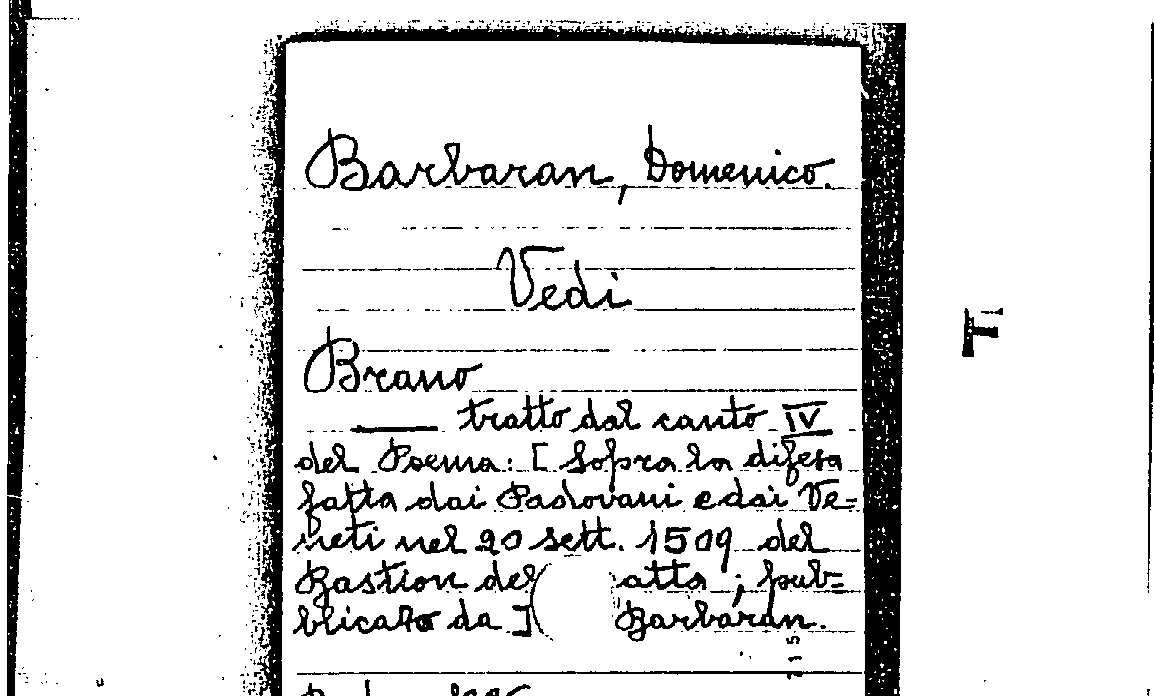 Barbaran, Domenico.
Vedi
Brano
tratto dal canto IV
del Poema: [Sopra la difesa
fatta dai Padovani e dai Ve=
neti nel 20 sett. 1509 del
Bastion del atta; pub=
blicato da] Barbaran.